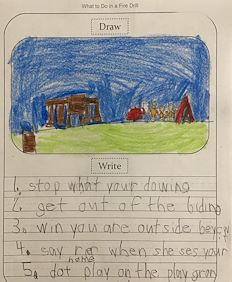 What to Do in a Fire Drill
Draw
Write
1. stop what your dowing
2. get out of the biding
3. win you are outside be
4. say when she ses your
name
5. dot play on the play gron